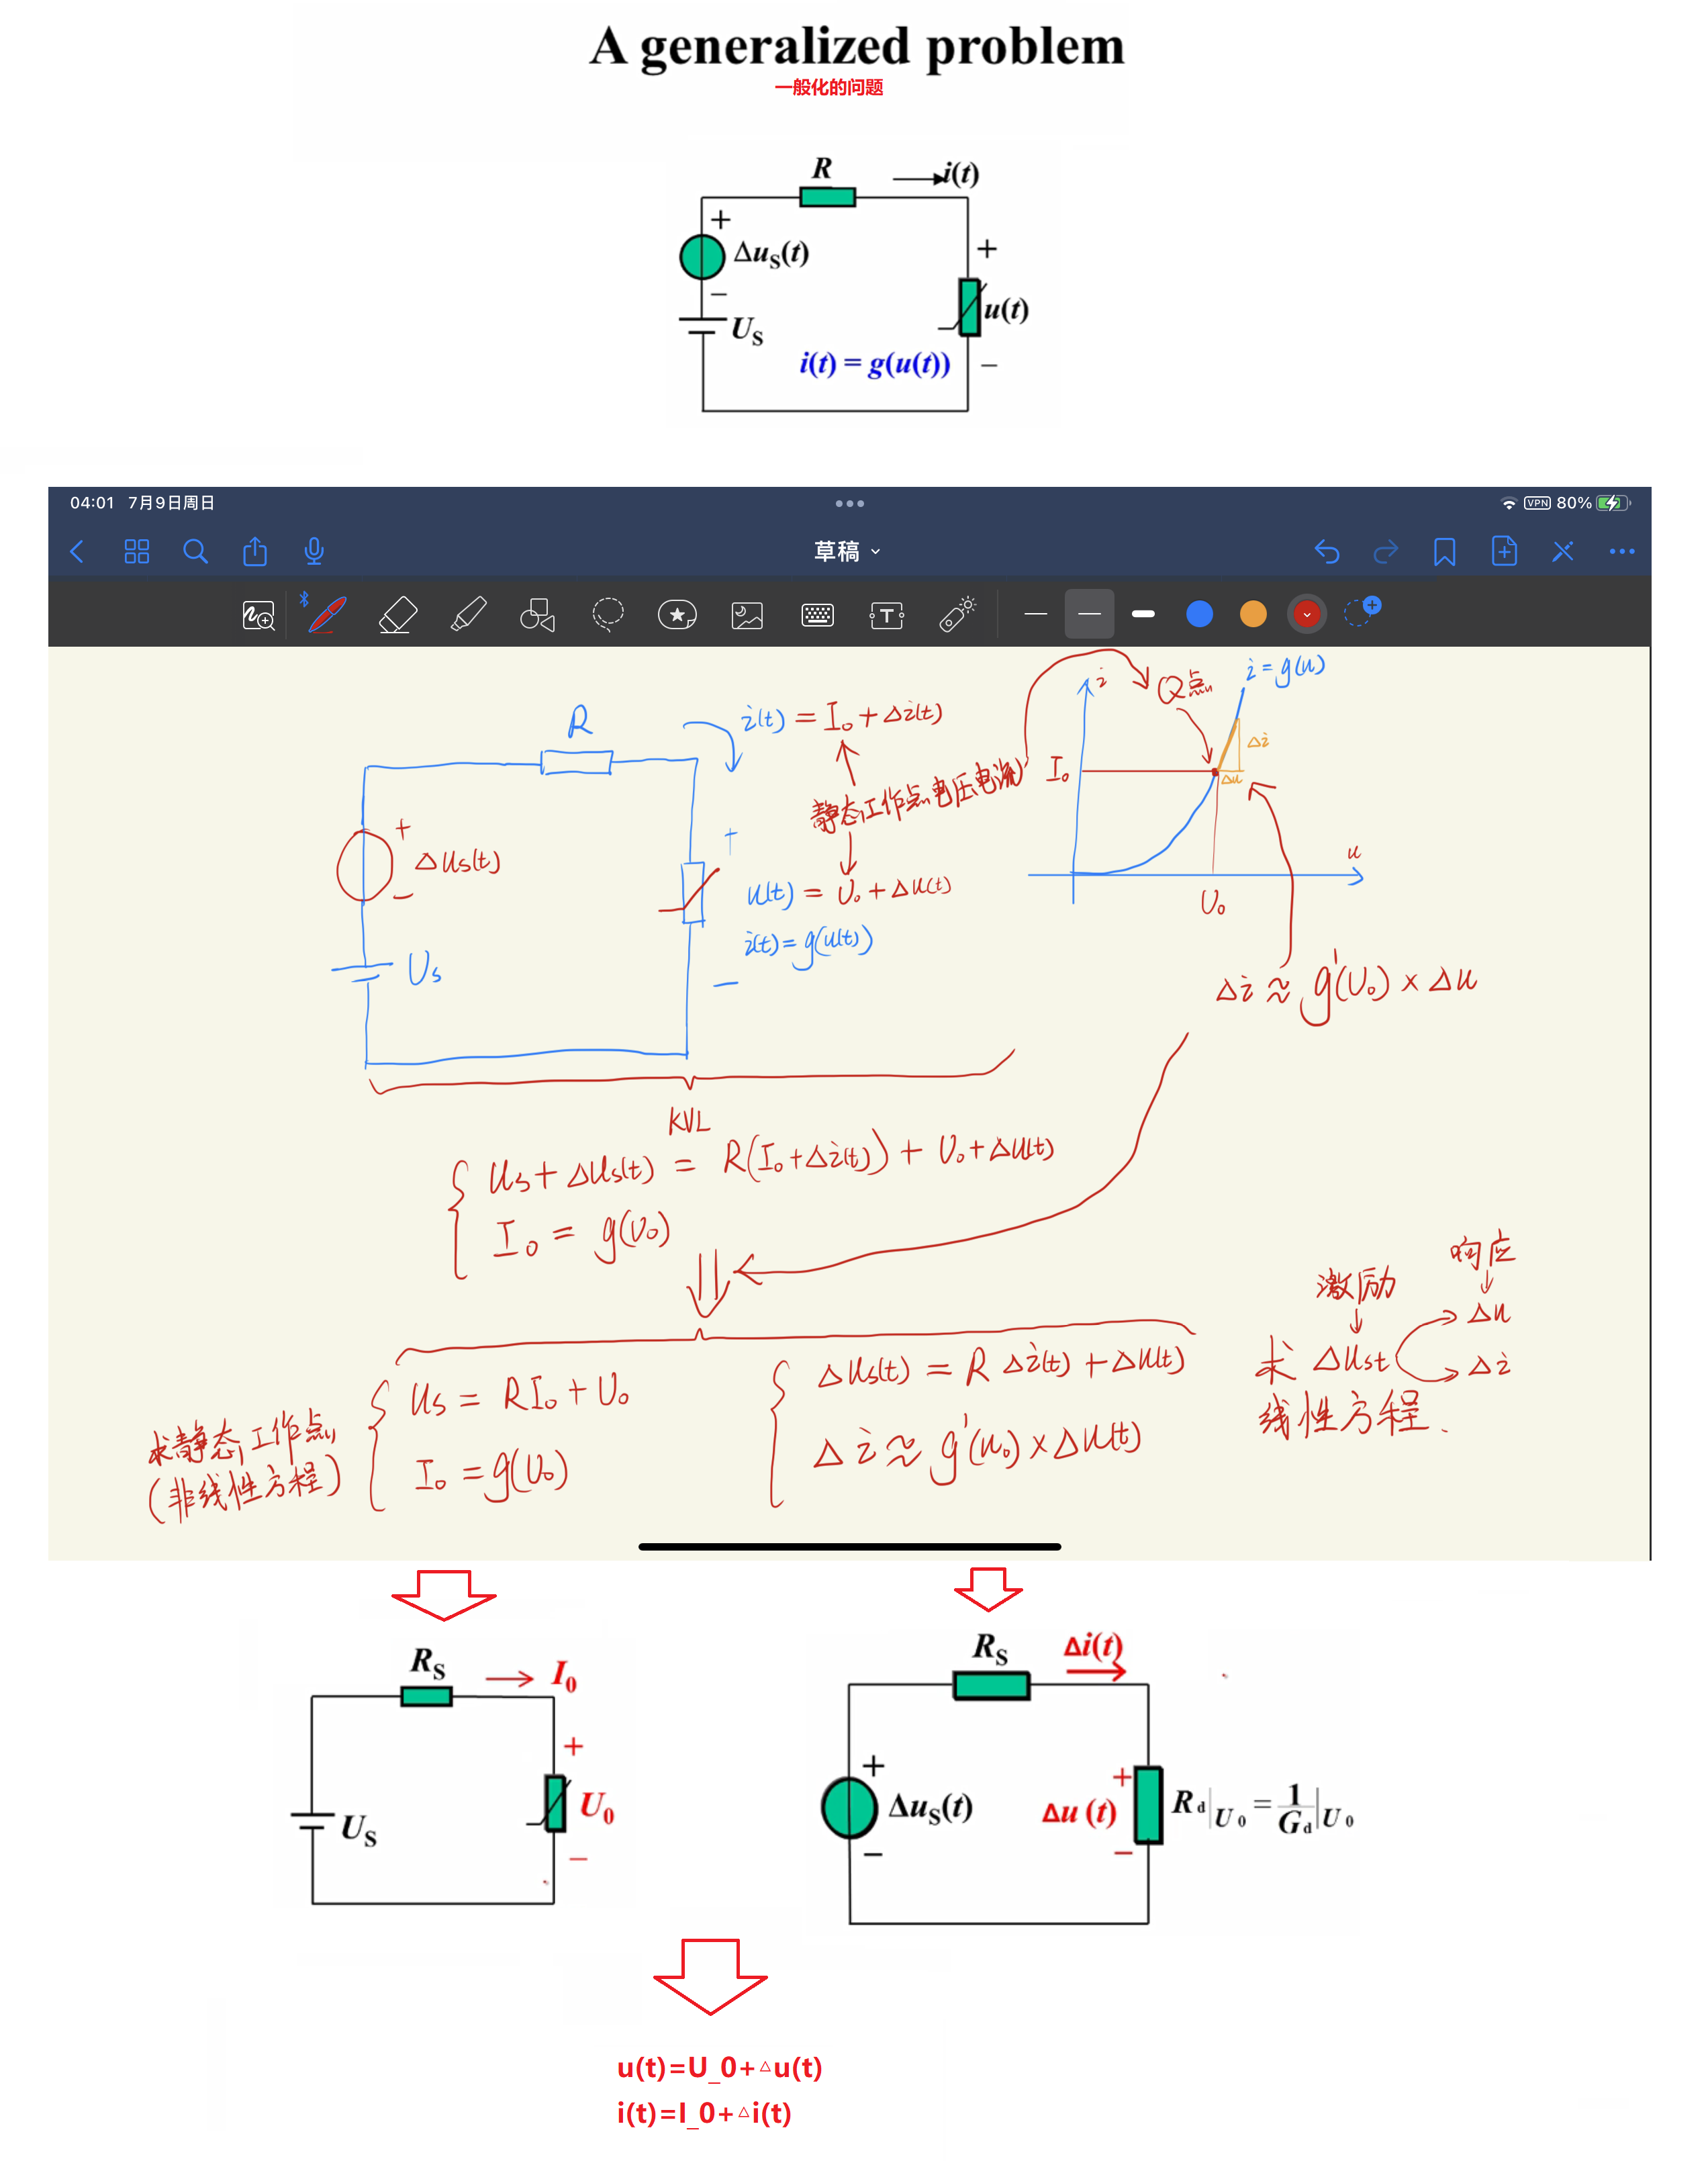 A generalized problem
一般化的问题
R
i(t)
+
Δu_S(t)
+
−
u(t)
U_S
i(t) = g(u(t))
−
04:01 7月9日周日
VPN 80%
草稿
T
R
i(t) = I₀ + Δi(t)
静态工作点电压电流
+
Δus(t)
−
Us
+
u(t) = U₀ + Δu(t)
i(t) = g(u(t))
−
i
Q点
i = g(u)
Δi
Δu
I₀
u
U₀
Δi ≈ g'(U₀) × Δu
KVL
Us + Δus(t) = R(I₀+Δi(t)) + U₀+Δu(t)
I₀ = g(U₀)
求静态工作点
(非线性方程)
Us = RI₀ + U₀
I₀ = g(U₀)
Δus(t) = R Δi(t) + Δu(t)
Δi ≈ g'(u₀) × Δu(t)
响应
激励
Δu
求 Δust
Δi
线性方程.
R_S
I₀
+
U₀
U_S
−
R_S
Δi(t)
+
Δu_S(t)
−
+
Δu(t)
−
R_d|U₀ = 1/G_d|U₀
u(t)=U_0+△u(t)
i(t)=I_0+△i(t)